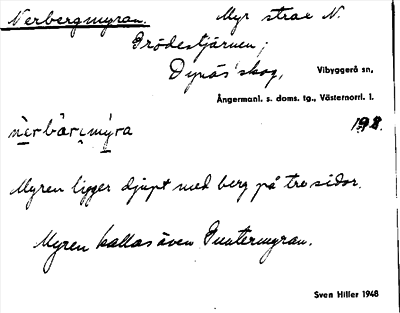 Nerbergmyran. Myr strax N.
Brödestjärnen;
Dynäs' skog, Vibyggerå sn,
Ångermanl. s. doms. tg., Västernorrl. l.
nèrbär,my̆ra 198.
Myren ligger djupt med berg på tre sidor.
Myren kallas även
Sven Hiller 1948